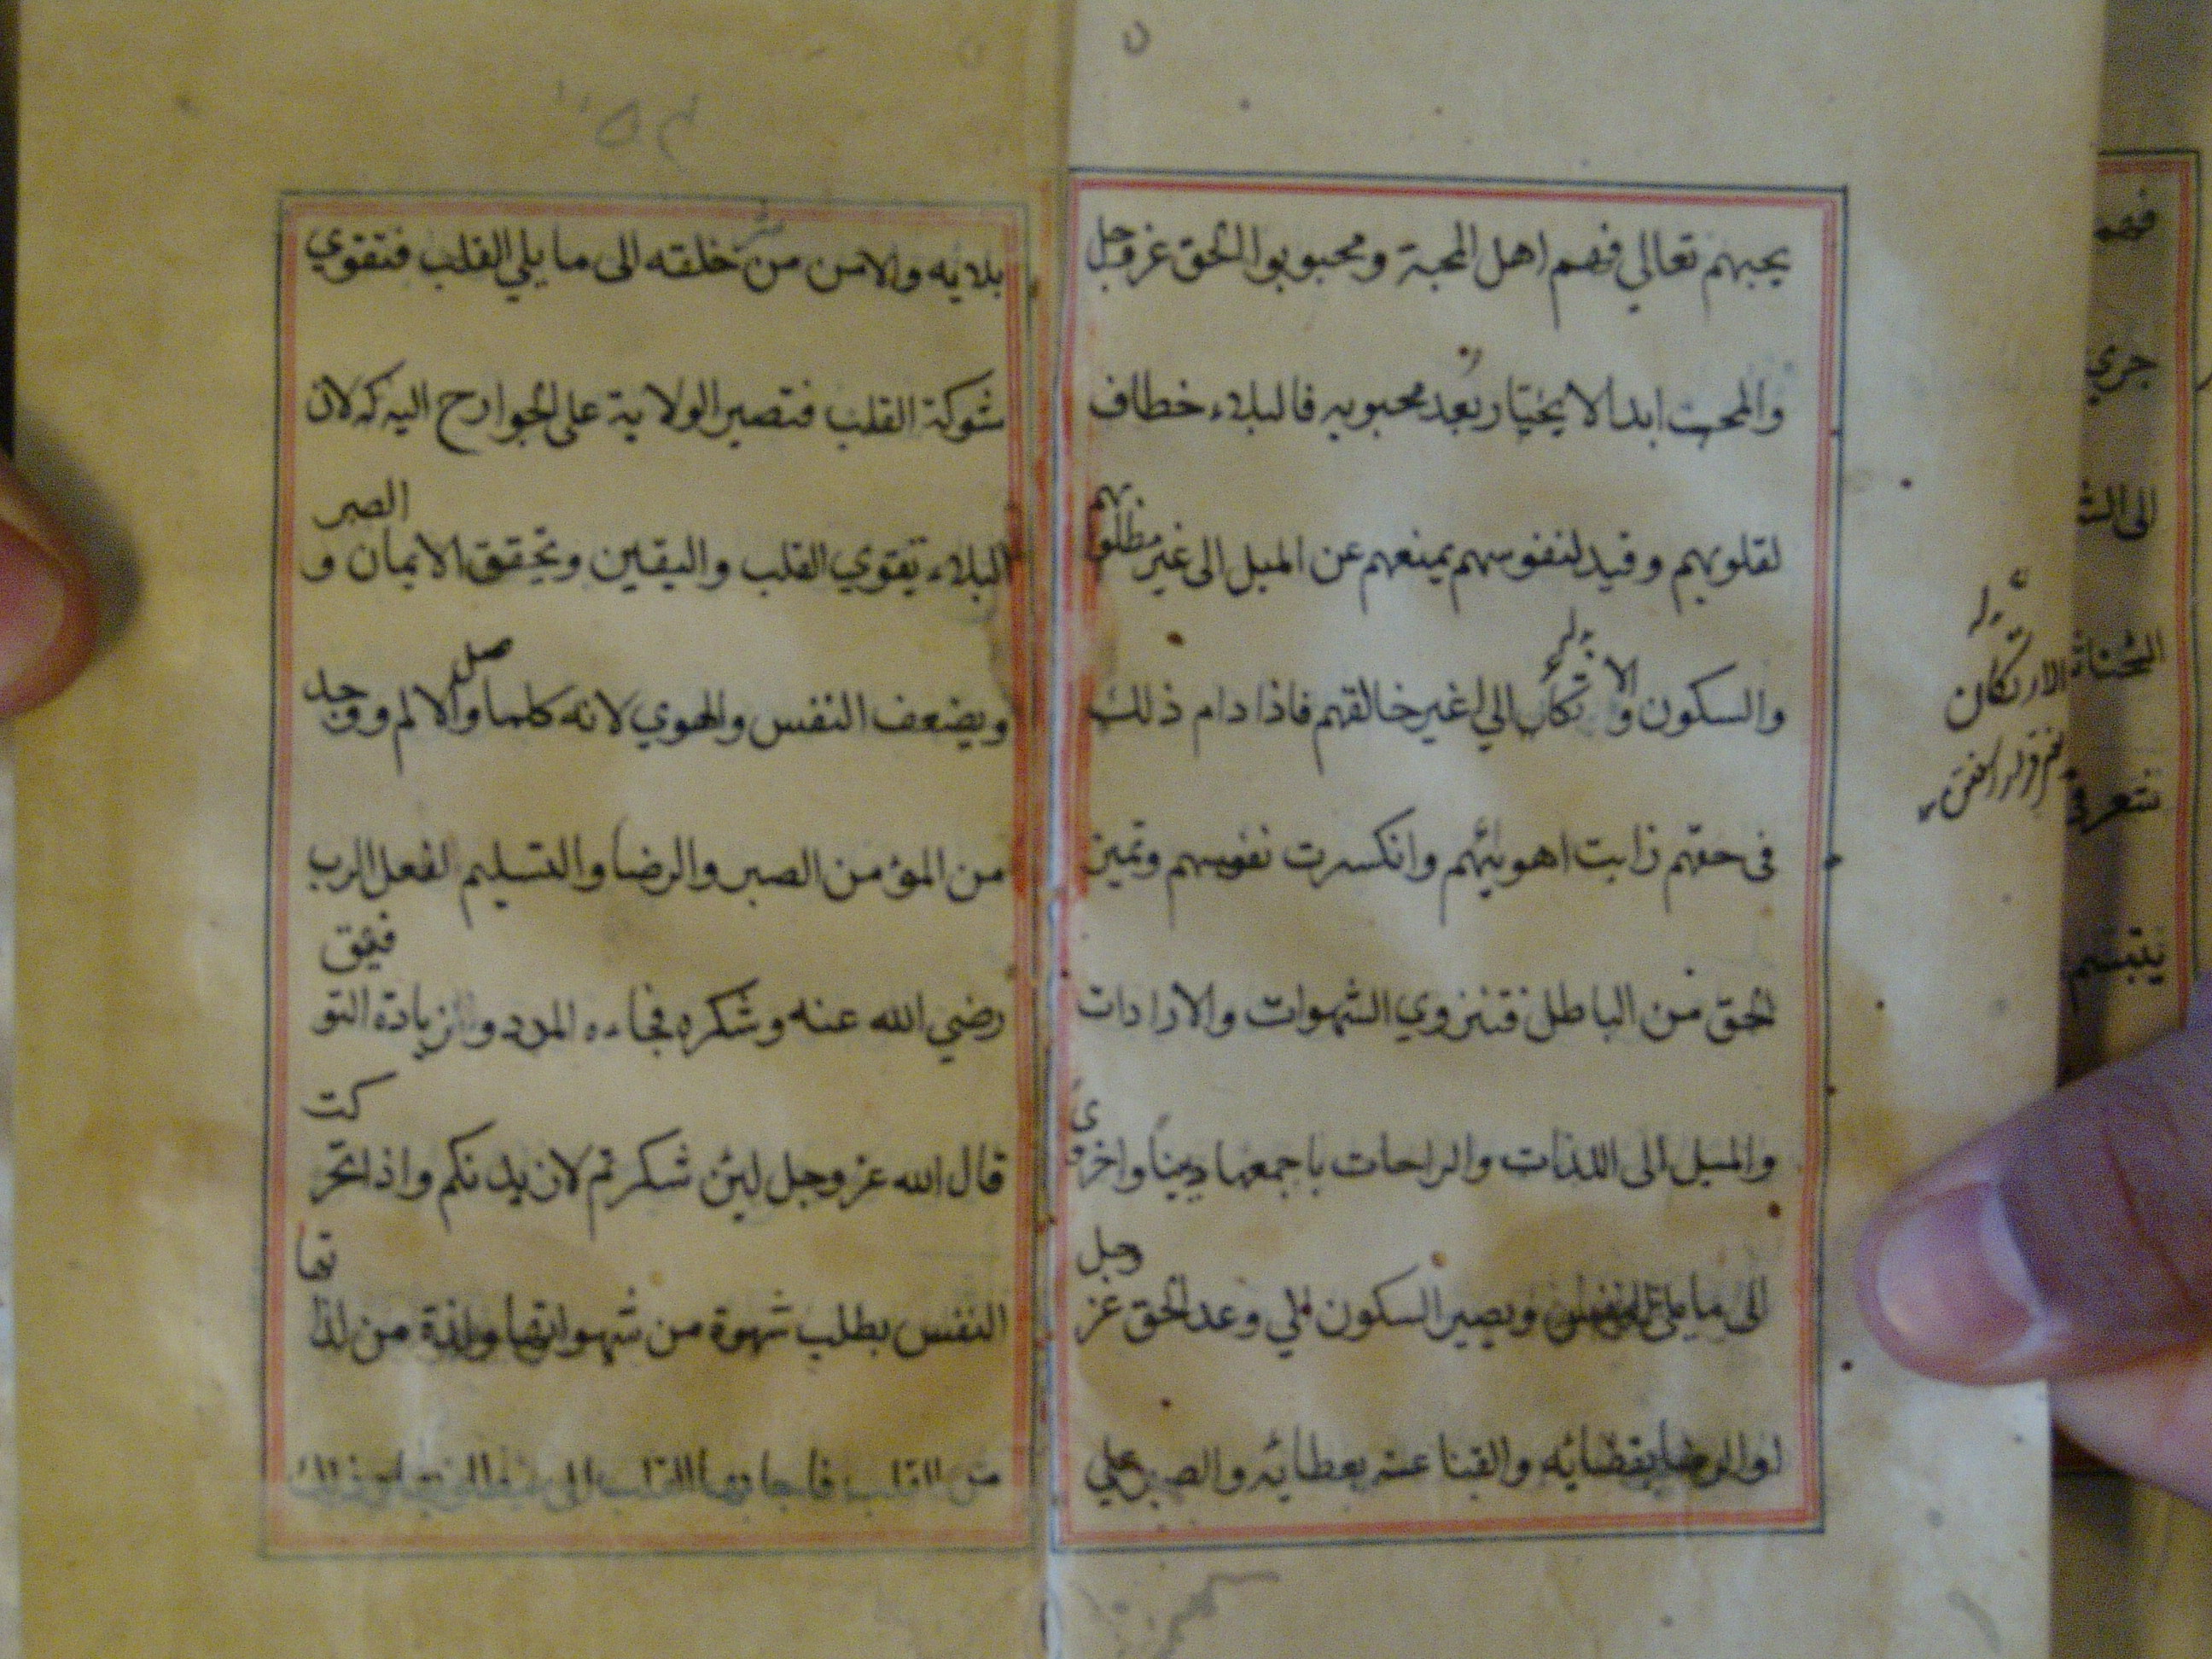 يحبهم تعالي فهم اهل المحبة ومحبوبوا الحق عز وجل
والمحب ابدا لا يختار بعد محبوبه فالبلاء خطاف
لقلوبهم وقيد لنفوسهم يمنعهم عن الميل الى غير مطلوبهم
والسكون والا تكال الي غير خالقهم فاذا دام ذلك
فى حقهم ذابت اهويتهم وانكسرت نفوسهم وتميز
الحق من الباطل فتنزوي الشهوات والارادات
والميل الى اللذات والراحات باجمعها دينا واخرى
الى ما يلي النفس ويصير السكون الي وعد الحق عز وجل
والرضا بقضائه والقناعة بعطائه والصبر علي
الارتكان
بلايه والامن من شر خلقه الى ما يلي القلب فتقوي
شوكة القلب فتصير الولاية على الجوارح اليه لان
البلاء يقوي القلب واليقين وتحقق الايمان و الصبر
ويضعف النفس والهوي لانه كلما وصل الالم ووجد
من المؤمن الصبر والرضا والتسليم لفعل الرب
رضي الله عنه وشكره فجاءه المدد والزيادة التو فيق
قال الله عز وجل ليئن شكرتم لازيدنكم واذا تحر كت
النفس بطلب شهوة من شهواتها ولذة من لذا تها
من القلب فاجابها القلب الى
فهم
جري
الى